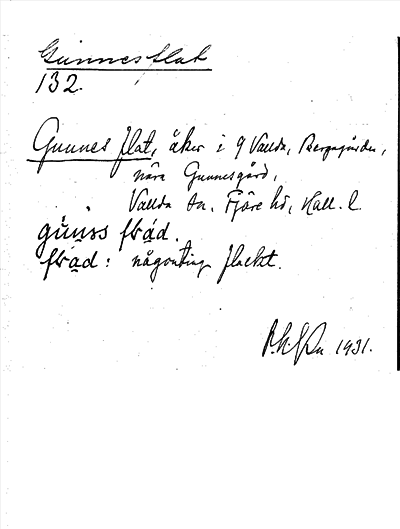 Gunnesflat
132.
Gunnes flat, åker i 9 Vallda, Bergsgården,
nära Gunnesgård,
Vallda sn. Fjäre hd, Hall. l.
flad: någonting flackt.
1931.